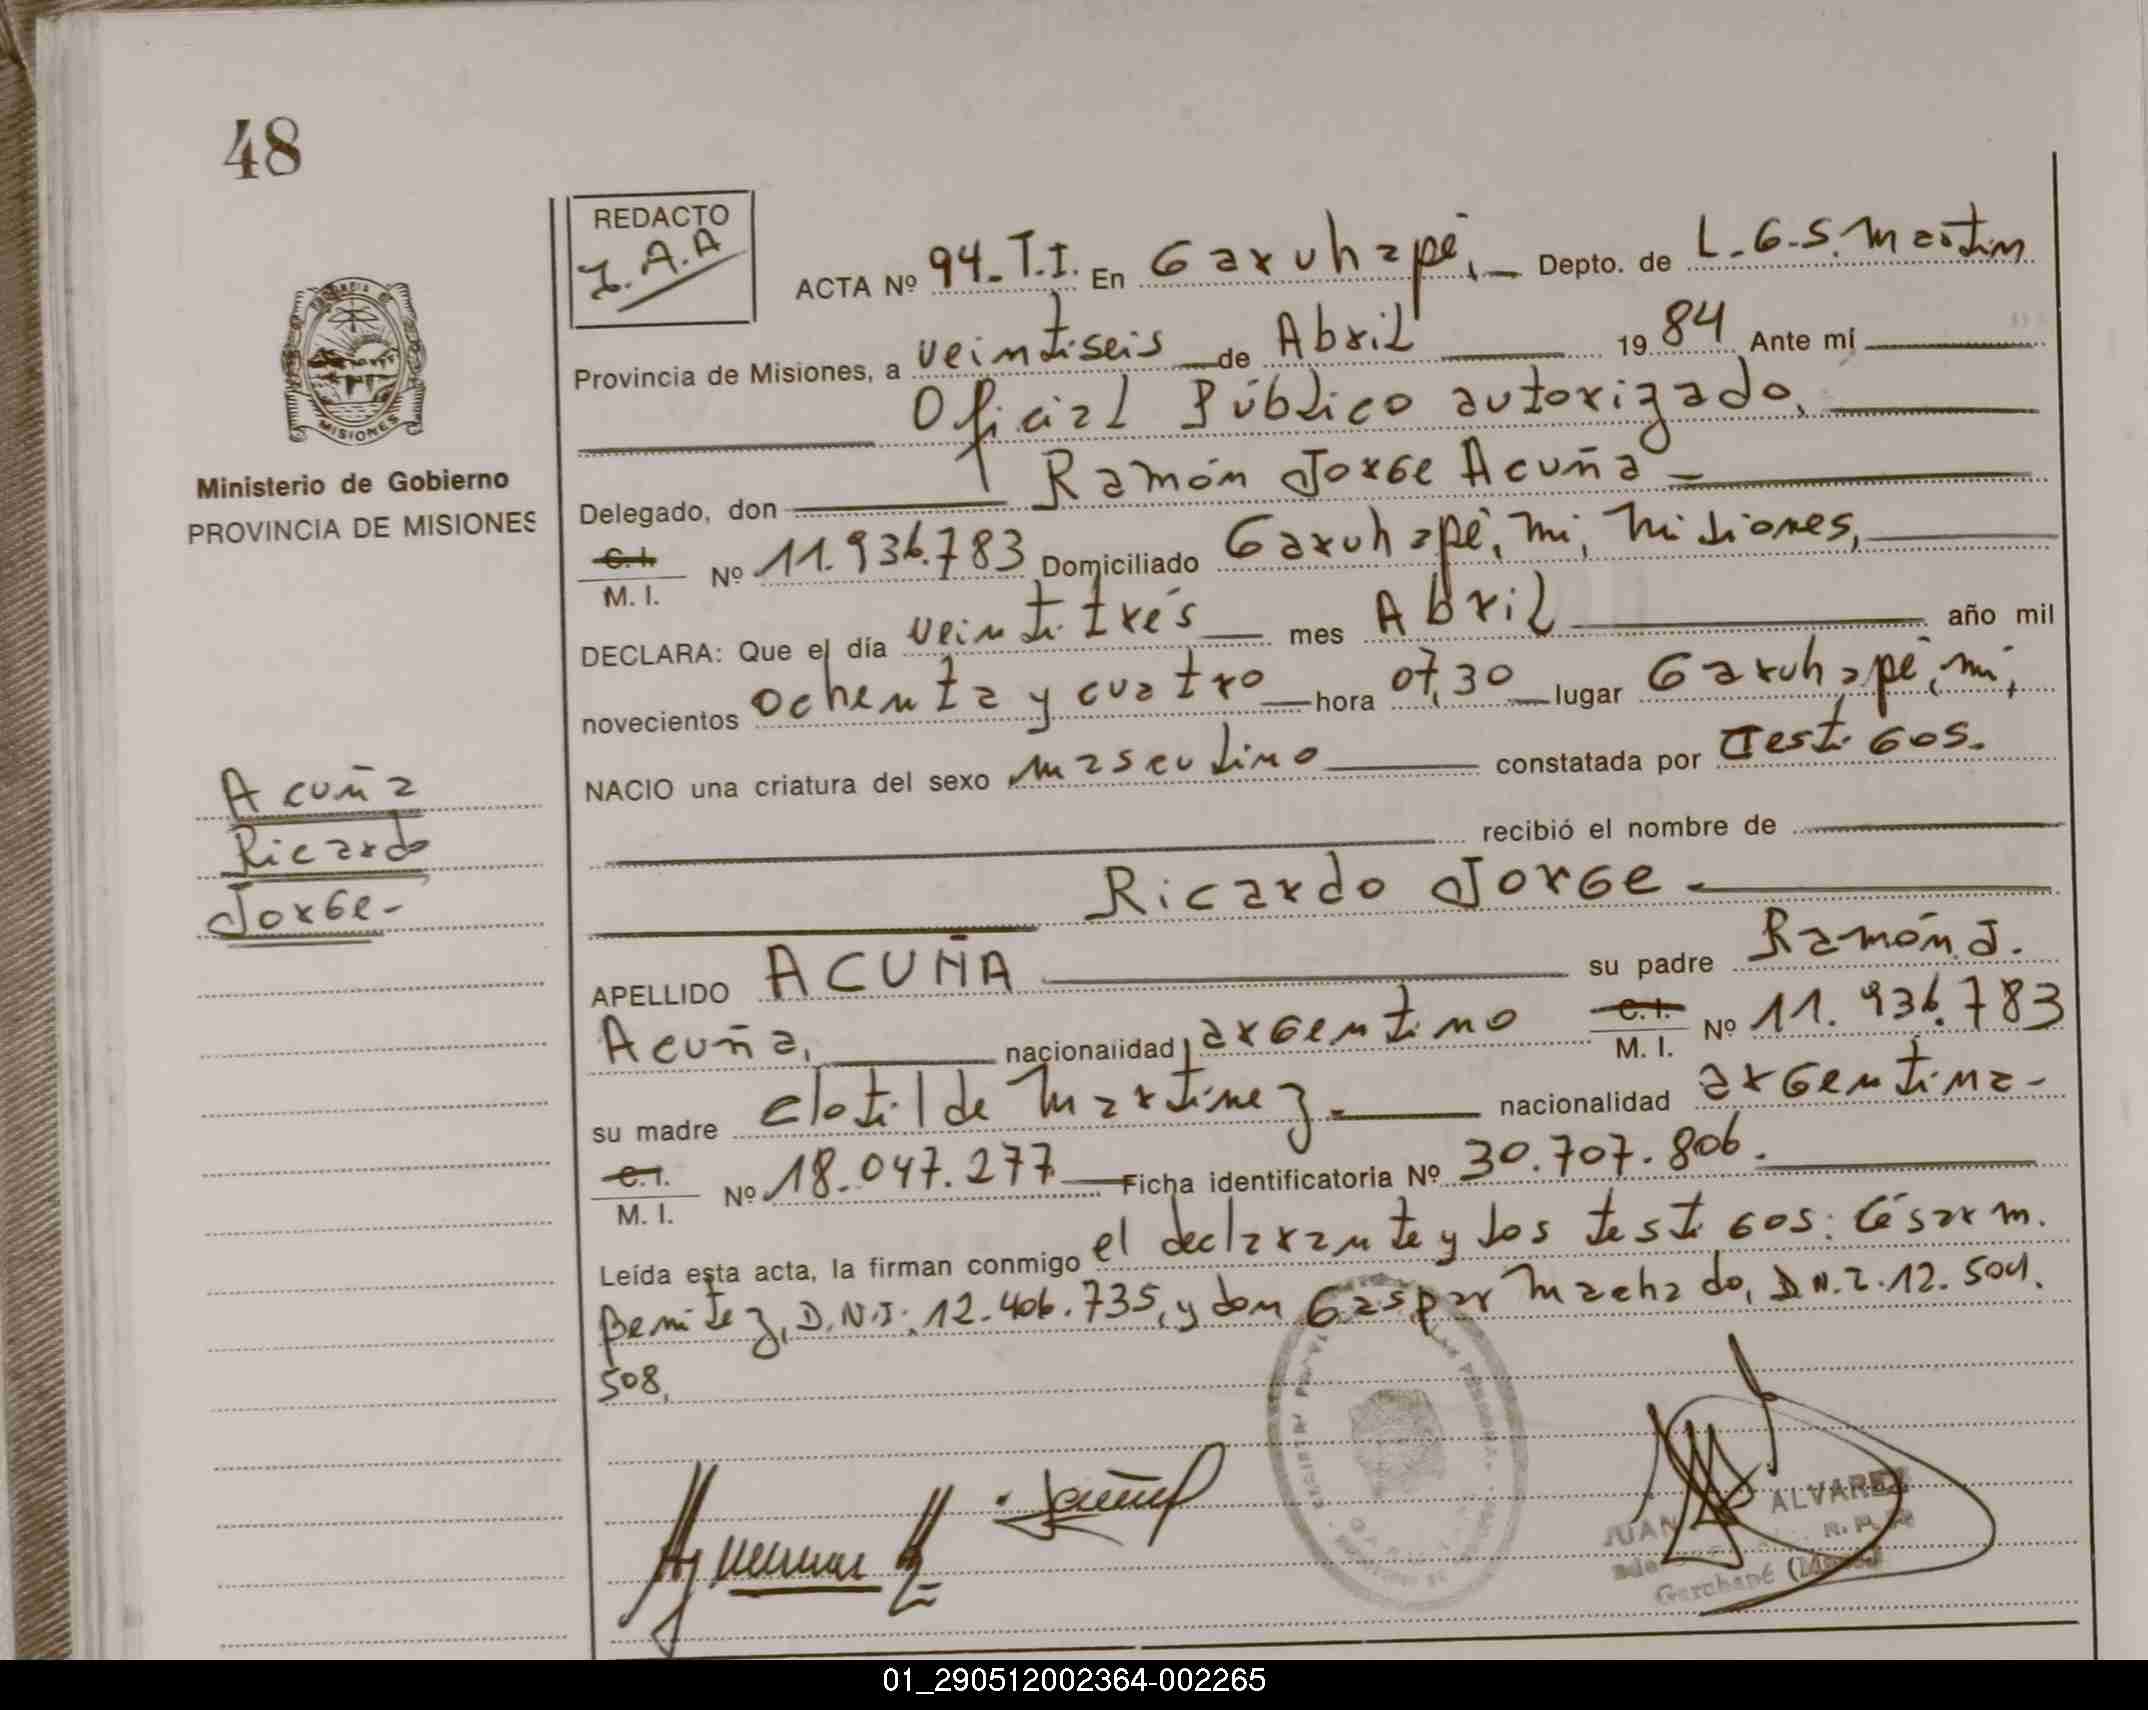 48
REDACTO
J.A.A
ACTA Nº 94-T.I. En Garuhapé, Depto. de L.G.S.Martin
Provincia de Misiones, a veintiseis de Abril 1984 Ante mí
Oficial Público autorizado,
Delegado, don Ramón Jorge Acuña
C.I.
M. I. Nº 11.936.783 Domiciliado Garuhapé, mi, Misiones,
DECLARA: Que el día veintitrés mes Abril año mil
novecientos ochenta y cuatro hora 07,30 lugar Garuhapé, mi,
NACIO una criatura del sexo masculino constatada por Testigos.
recibió el nombre de
Ricardo Jorge
APELLIDO ACUÑA su padre Ramón J.
Acuña, nacionalidad argentino C.I.
M. I. Nº 11.936.783
su madre Clotilde Martinez nacionalidad argentina
C.I.
M. I. Nº 18.047.277 Ficha identificatoria Nº 30.707.806.
Leída esta acta, la firman conmigo el declarante y los testigos: César M.
Benitez, D.N.I. 12.406.735, y don Gaspar Machado, D.N.I. 12.504.
508,
MISIONES
Ministerio de Gobierno
PROVINCIA DE MISIONES
Acuña
Ricardo
Jorge
JUAN ALVAREZ
01_290512002364-002265